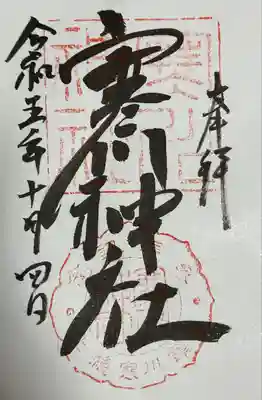 奉拝
寒川神社
令和五年十月四日